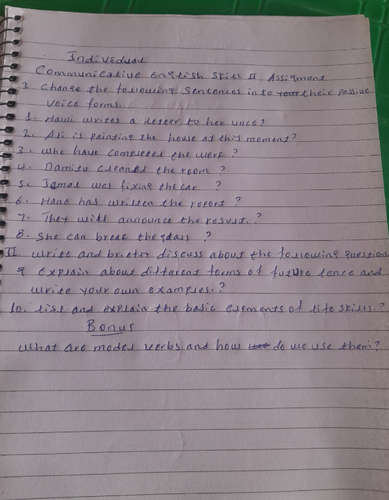 Individual
Communicative English Skill II Assigment
I. Change the following Sentences in to their passive
voice forms.
1. Hawi writes a letter to her uncle?
2. Ali is painting the house at this moment?
3. Who have completed the work?
4. Damitu cleaned the room?
5. Jemal was fixing the car ?
6. Hana has written the report?
7. They will announce the result.?
8. She can break the glass ?
II. Write and briefly discuss about the following questions
9 Explain about different forms of future tence and
write your own examples.?
10. List and explain the basic elements of life skills.?
Bonus
What are modal verbs and how do we use them?